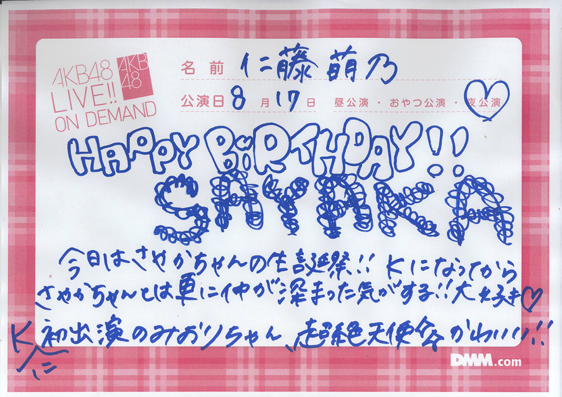 AKB48
LIVE!!
ON DEMAND
AKB
48
名前 仁藤萌乃
公演日 8 月 17 日 昼公演・おやつ公演・夜公演
HAPPY BiRTHDAY!!
SAYAKA
今日はさやかちゃんの生誕祭!! Kになってから
さやかちゃんとは更に仲が深まった気がする!! 大好き♡
K初出演のみおりちゃん、超絶天使々かわいい!!
に
DMM.com